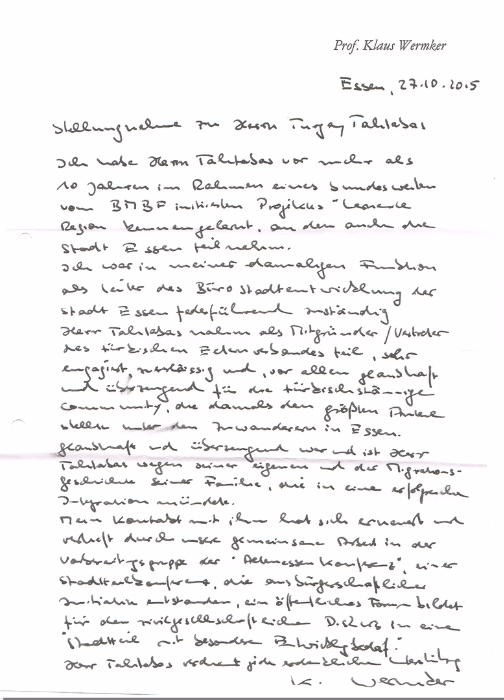 Prof. Klaus Wermker
Essen, 27.10.2015
Stellungnahme zu Herrn Turgay Tahtabas
Ich habe Herrn Tahtabas vor mehr als
10 Jahren im Rahmen eines bundesweiten
vom BMBF initiierten Projektes "Lernende
Region kennengelernt, an dem auch die
Stadt Essen teilnahm.
Ich war in meiner damaligen Funktion
als Leiter des Büro Stadtentwicklung der
Stadt Essen federführend zuständig
Herr Tahtabas nahm als Mitgründer/Vertreter
des türkischen Elternverbandes teil, sehr
engagiert, zuverlässig und, vor allem glaubhaft
und überzeugend für die türkischstämmige
Community, die damals den größten Anteil
stellte unter den Zuwanderern in Essen.
Glaubhaft und überzeugend war und ist Herr
Tahtabas wegen seiner eigenen und der Migrations-
geschichte seiner Familie, die in eine erfolgreiche
Integration mündete.
Mein Kontakt mit ihm hat sich erneuert und
vertieft durch unsre gemeinsame Arbeit in der
Vorbereitungsgruppe der "Altenessen Konferenz", einer
Stadtteilkonferenz, die aus bürgerschaftlicher
Initiative entstanden, ein öffentliches Forum bildet
für den zivilgesellschaftlichen Diskurs in eine
"Stadtteil mit besondere Entwicklgsbedarf".
Herr Tahtabas verdient jede erdenkliche
K. Wermker